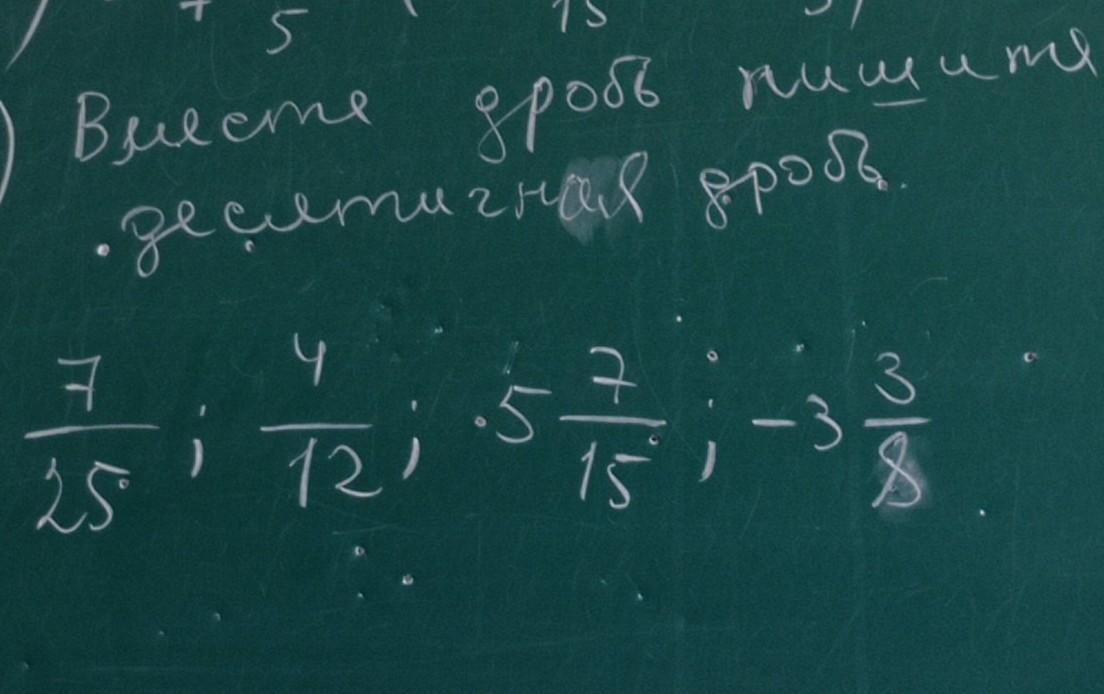 5 15
Вместе дробь пишите
десятичная дробь.
7/25 ; 4/12 ; 5 7/15 ; -3 3/8